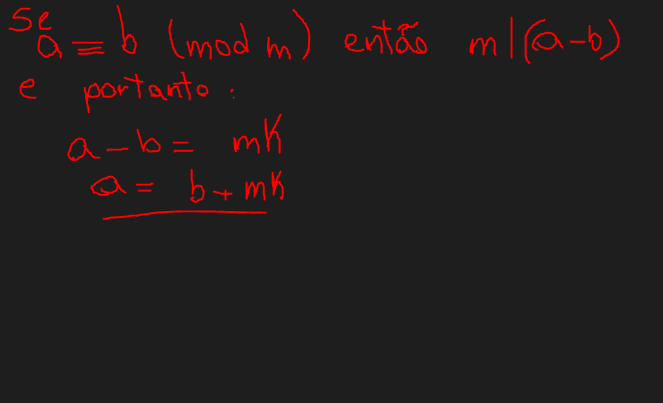 Se
a ≡ b (mod m) então m|(a-b)
e portanto.
a - b = mk
a = b + mk